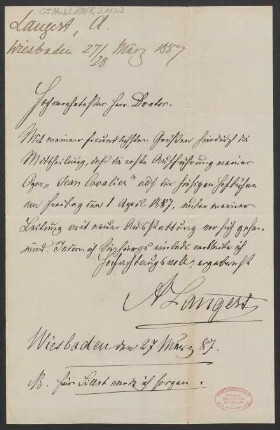 Langert, A.
Wiesbaden 27/28 März 1887
Hochverehrtester Herr Doctor.
Mit meinen freundlichsten Grüßen hiedurch die
Mittheilung, daß die erste Aufführung meiner
Oper „Jean Cavalier" auf der hiesigen Hofbühne
am Freitag den 1 April 1887. unter meiner
Leitung mit neuer Ausstattung vor sich gehen
wird. Indem ich Sie hiezu einlade verbleibe ich
Hochachtungsvoll ergebenst
A Langert
Wiesbaden den 27 März 87.
NB. Für Billet werde ich sorgen.